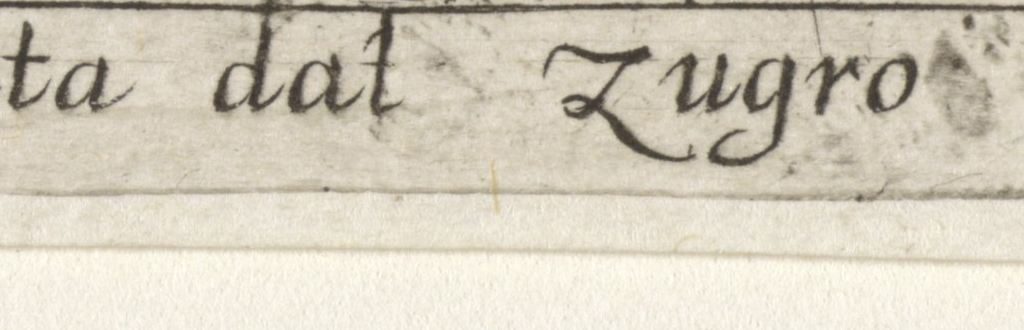 ta dal Zugro